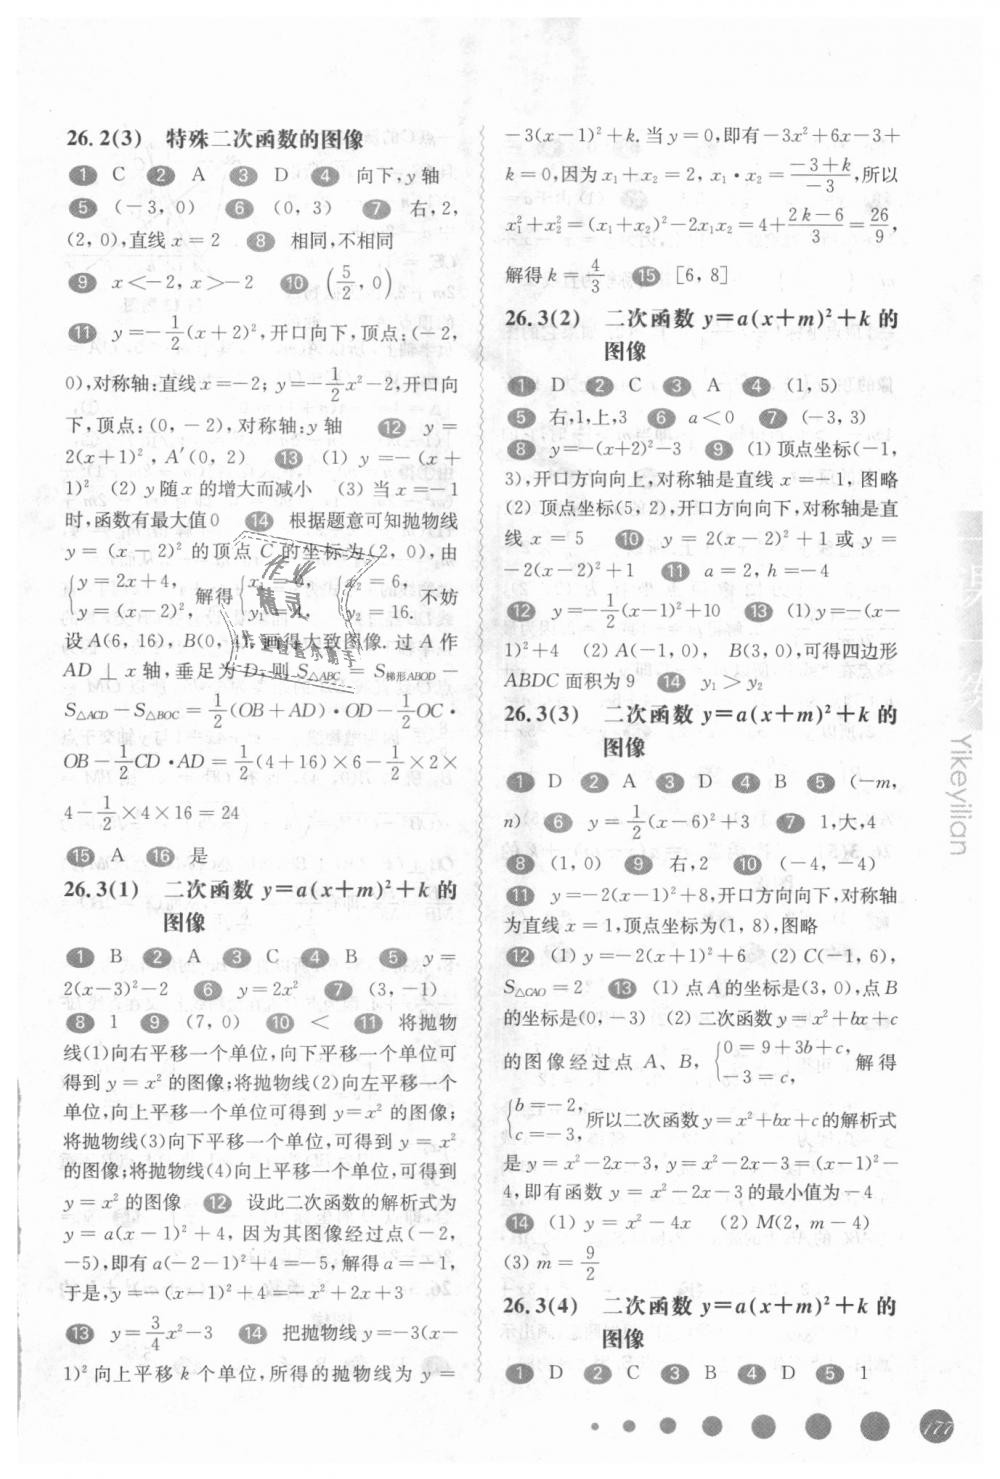 26.2(3) 特殊二次函数的图像
1 C 2 A 3 D 4 向下,y 轴
5 (-3, 0) 6 (0, 3) 7 右,2,
(2, 0),直线 x=2 8 相同,不相同
9 x<-2, x>-2 10 (5/2, 0)
11 y=-1/2(x+2)²,开口向下,顶点:(-2,
0),对称轴:直线 x=-2; y=-1/2x²-2,开口向
下,顶点:(0,-2),对称轴:y 轴 12 y=
2(x+1)², A′(0, 2) 13 (1) y=-(x+
1)² (2) y 随 x 的增大而减小 (3) 当 x=-1
时,函数有最大值0 14 根据题意可知抛物线
y=(x-2)² 的顶点 C 的坐标为(2, 0),由
{y=2x+4, y=(x-2)², 解得 {x₁=0, y₁=4, {x₂=6, y₂=16. 不妨
设 A(6, 16), B(0, 4),画得大致图像. 过 A 作
AD⊥x 轴,垂足为 D,则 S△ABC = S梯形ABOD -
S△ACD - S△BOC = 1/2(OB+AD)·OD-1/2OC·
OB-1/2CD·AD=1/2(4+16)×6-1/2×2×
4-1/2×4×16=24
15 A 16 是
26.3(1) 二次函数 y=a(x+m)²+k 的
图像
1 B 2 A 3 C 4 B 5 y=
2(x-3)²-2 6 y=2x² 7 (3, -1)
8 1 9 (7, 0) 10 < 11 将抛物
线(1)向右平移一个单位,向下平移一个单位可
得到 y=x² 的图像;将抛物线(2)向左平移一个
单位,向上平移一个单位可得到 y=x² 的图像;
将抛物线(3)向下平移一个单位,可得到 y=x²
的图像;将抛物线(4)向上平移一个单位,可得到
y=x² 的图像 12 设此二次函数的解析式为
y=a(x-1)²+4, 因为其图像经过点(-2,
-5),即有 a(-2-1)²+4=-5,解得 a=-1,
于是, y=-(x-1)²+4=-x²+2x+3
13 y=3/4x²-3 14 把抛物线 y=-3(x-
1)² 向上平移 k 个单位,所得的抛物线为 y=
-3(x-1)²+k. 当 y=0,即有-3x²+6x-3+
k=0,因为 x₁+x₂=2, x₁·x₂=(-3+k)/(-3),所以
x₁²+x₂²=(x₁+x₂)²-2x₁x₂=4+(2k-6)/3=26/9,
解得 k=4/3 15 [6, 8]
26.3(2) 二次函数 y=a(x+m)²+k 的
图像
1 D 2 C 3 A 4 (1, 5)
5 右,1,上,3 6 a<0 7 (-3, 3)
8 y=-(x+2)²-3 9 (1) 顶点坐标(-1,
3),开口方向向上,对称轴是直线 x=-1,图略
(2) 顶点坐标(5, 2),开口方向向下,对称轴是直
线 x=5 10 y=2(x-2)²+1 或 y=
-2(x-2)²+1 11 a=2, h=-4
12 y=-1/2(x-1)²+10 13 (1) y=-(x-
1)²+4 (2) A(-1, 0), B(3, 0),可得四边形
ABDC 面积为 9 14 y₁>y₂
26.3(3) 二次函数 y=a(x+m)²+k 的
图像
1 D 2 A 3 D 4 B 5 (-m,
n) 6 y=1/2(x-6)²+3 7 1,大,4
8 (1, 0) 9 右,2 10 (-4, -4)
11 y=-2(x-1)²+8,开口方向向下,对称轴
为直线 x=1,顶点坐标为(1, 8),图略
12 (1) y=-2(x+1)²+6 (2) C(-1, 6),
S△CAO=2 13 (1) 点 A 的坐标是(3, 0),点 B
的坐标是(0, -3) (2) 二次函数 y=x²+bx+c
的图像经过点 A、B, {0=9+3b+c, -3=c, 解得
{b=-2, c=-3, 所以二次函数 y=x²+bx+c 的解析式
是 y=x²-2x-3, y=x²-2x-3=(x-1)²-
4,即有函数 y=x²-2x-3 的最小值为-4
14 (1) y=x²-4x (2) M(2, m-4)
(3) m=9/2
26.3(4) 二次函数 y=a(x+m)²+k 的
图像
1 D 2 C 3 B 4 D 5 1
Yikeyilian
177
作业
精灵